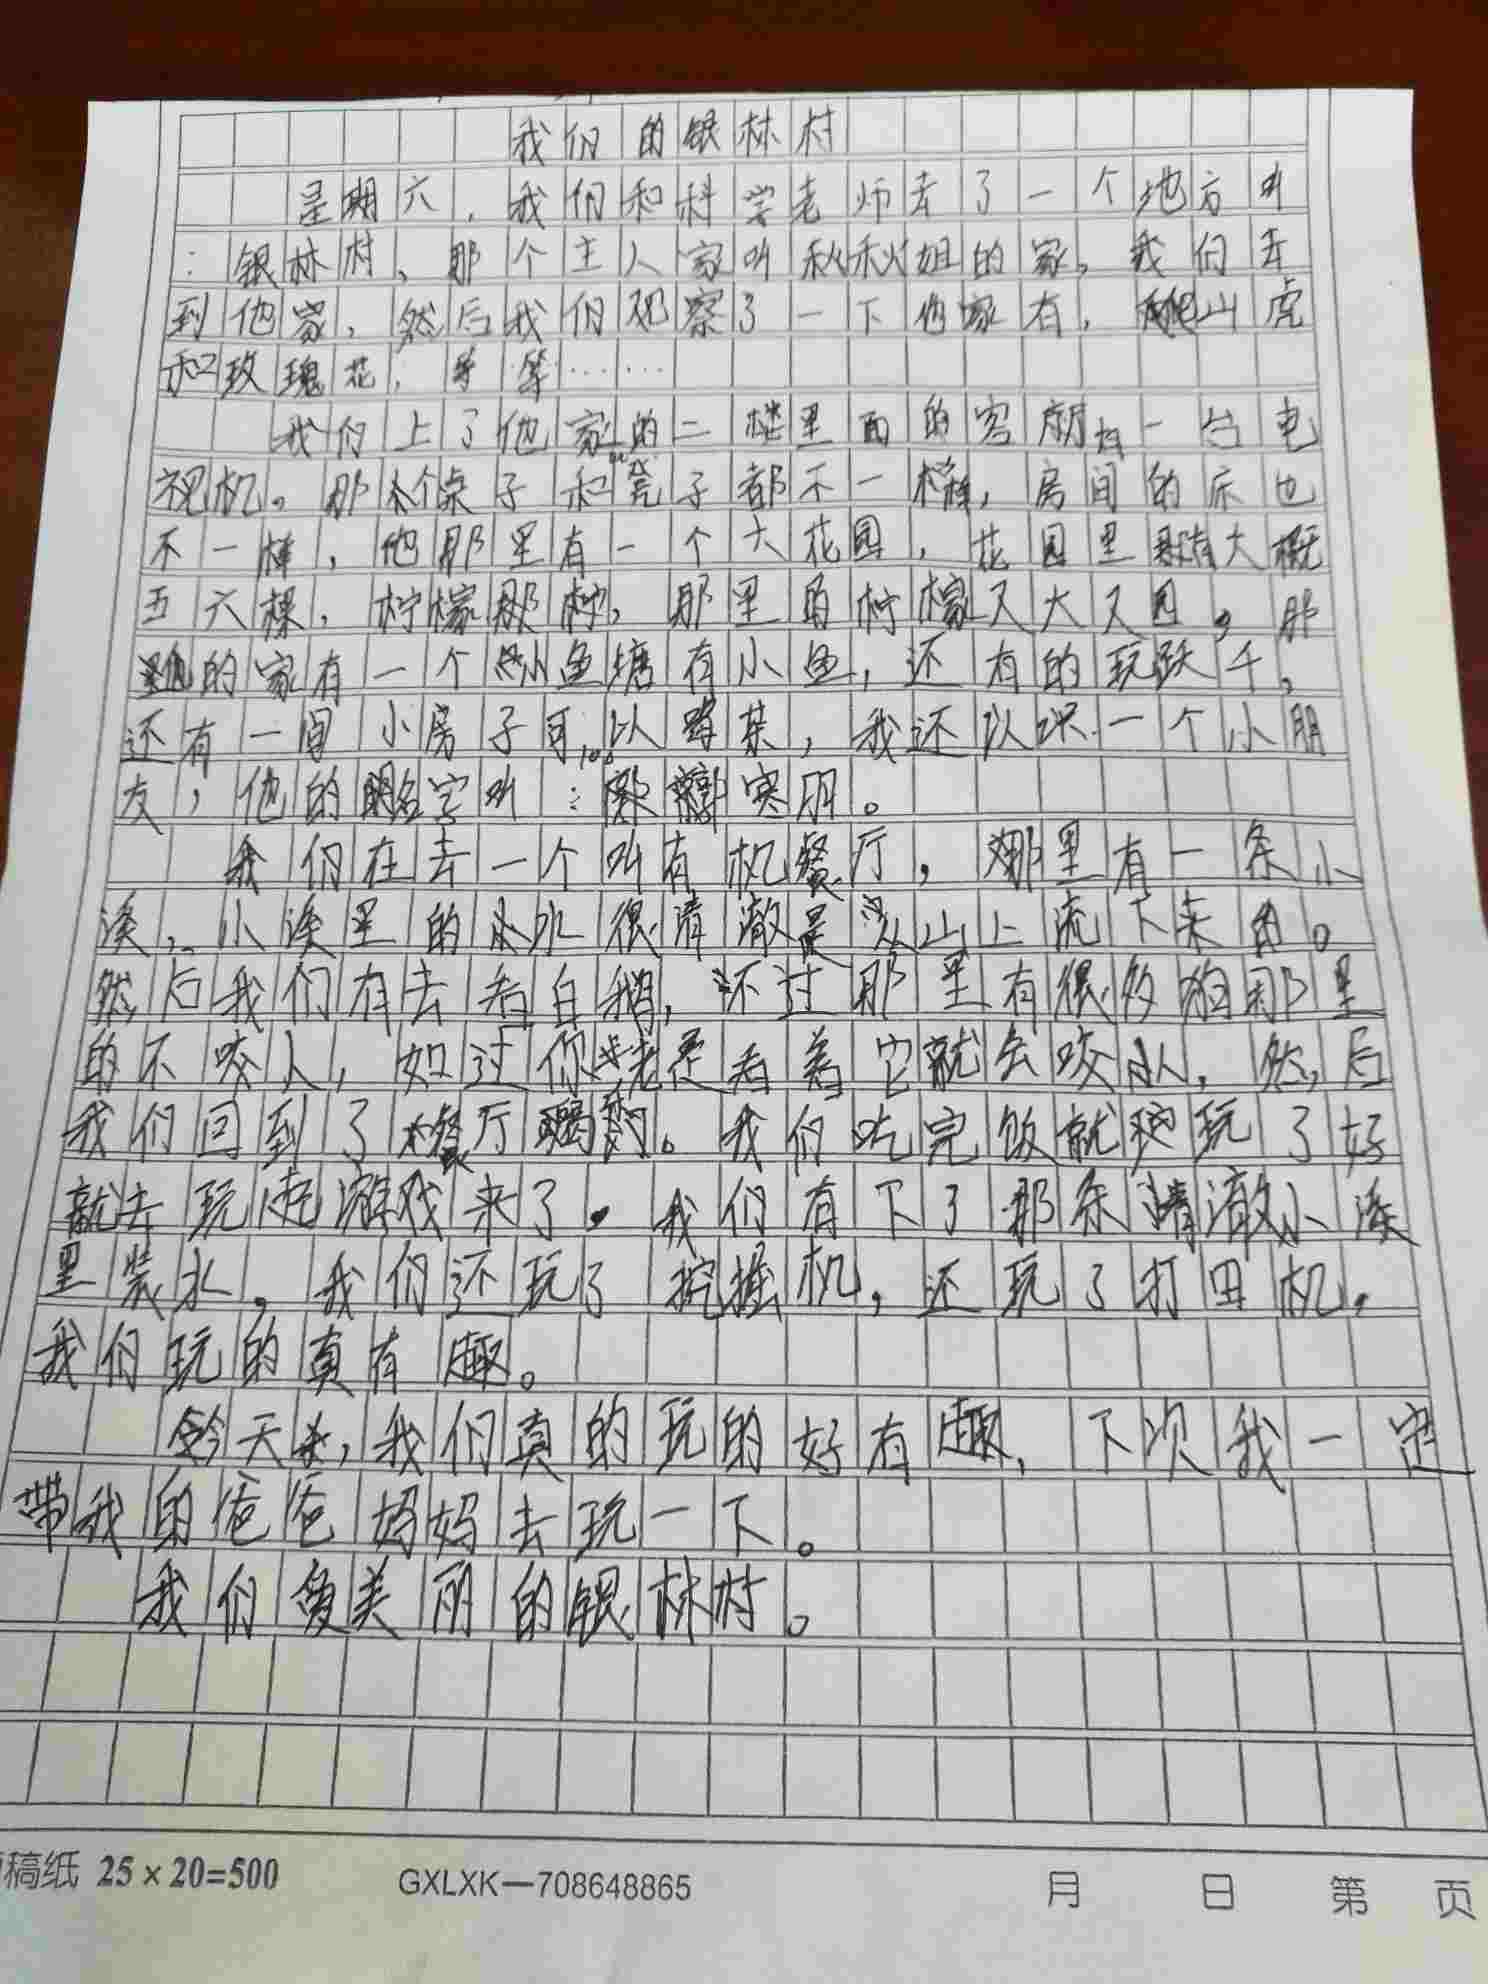 我们的银林村
星期六，我们和科学老师去了一个地方叫
：银林村，那个主人家叫秋秋姐的家，我们去
到他家，然后我们观察了一下他家有，爬山虎
和玫瑰花，等等……
我们上了他家的二楼里面的客厅有一台电
视机。那个桌子和凳子都不一样，房间的床也
不一样，他那里有一个大花园，花园里有大概
五六棵，柠檬树，那里的柠檬又大又园，那
的家有一个小鱼塘有小鱼，还有的玩跌千，
还有一间小房子可以喝茶，我还认识一个小朋
友，他的名字叫：寒朋。
我们在去一个叫有机餐厅，那里有一条小
溪，小溪里的水很清澈是从山上流下来的。
然后我们有去看白鹅，还过那里有很多狗那里
的不咬人，如过你老是看着它就会咬人，然后
我们回到了餐厅。我们吃完饭就玩了好
就去玩起游戏来了。我们有下了那条清澈小溪
里装水，我们还玩了挖掘机，还玩了打田机，
我们玩的真有趣。
今天，我们真的玩的好有趣，下次我一定
带我的爸爸妈妈去玩一下。
我们爱美丽的银林村。
稿纸 25×20=500 GXLXK—708648865 月 日 第 页